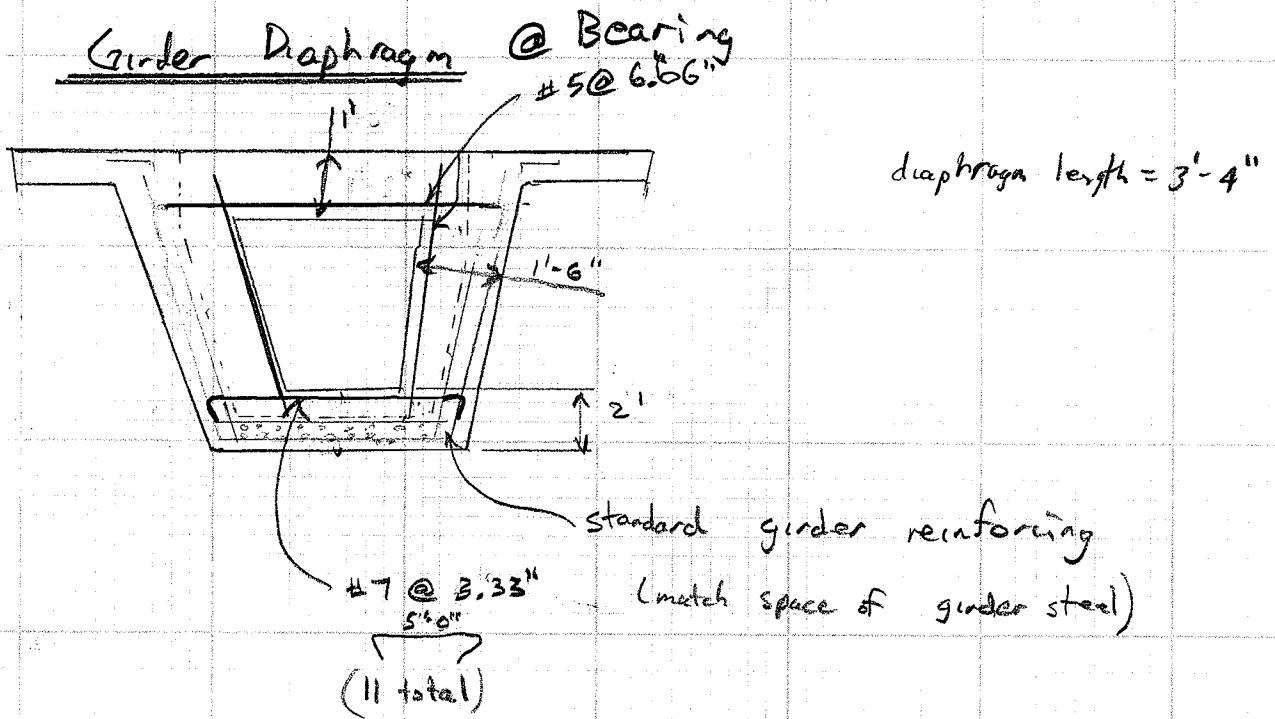 Girder Diaphragm @ Bearing
#5@ 6.66"
1'
diaphragm length = 3'-4"
1'-6"
2'
standard girder reinforcing
(match space of girder steel)
#7 @ 3.33"
(11 total)